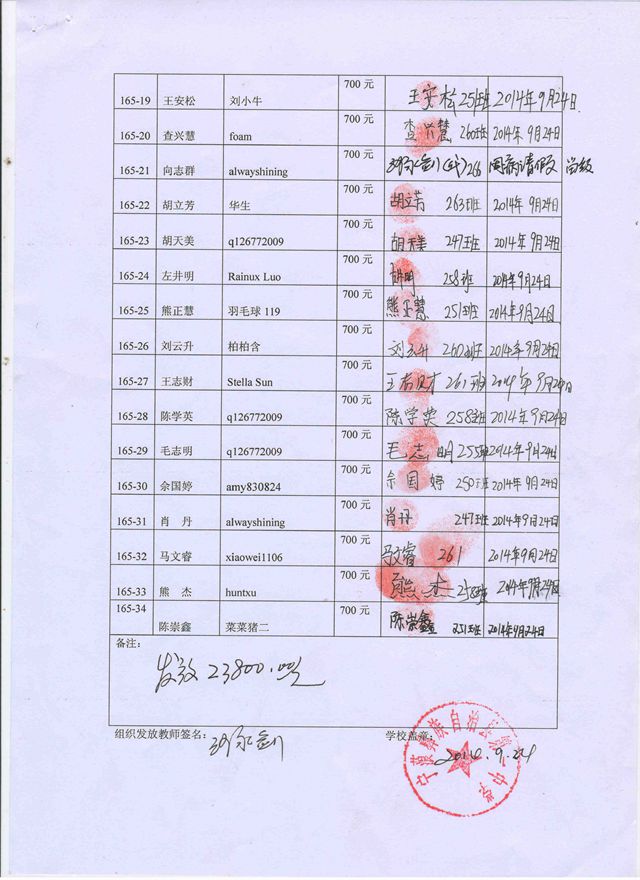 165-19 王安松 刘小牛 700 元 王安松 251班 2014年9月24日
165-20 查兴慧 foam 700 元 查兴慧 260班 2014年9月24日
165-21 向志群 alwayshining 700 元 (代) 266 因病请假
165-22 胡立芳 华生 700 元 胡立芳 263班 2014年9月24日
165-23 胡天美 q126772009 700 元 胡天美 247班 2014年9月24日
165-24 左井明 Rainux Luo 700 元 258班 2014年9月24日
165-25 熊正慧 羽毛球 119 700 元 熊正慧 251班 2014年9月24日
165-26 刘云升 柏柏含 700 元 刘云升 260班 2014年9月24日
165-27 王志财 Stella Sun 700 元 王志财 261班 2014年9月24日
165-28 陈学英 q126772009 700 元 陈学英 258班 2014年9月24日
165-29 毛志明 q126772009 700 元 毛志明 255班 2014年9月24日
165-30 余国婷 amy830824 700 元 余国婷 250班 2014年9月24日
165-31 肖 丹 alwayshining 700 元 肖丹 247班 2014年9月24日
165-32 马文睿 xiaowei1106 700 元 马文睿 261 2014年9月24日
165-33 熊 杰 huntxu 700 元 熊杰 258班 2014年9月24日
165-34 陈崇鑫 菜菜猪二 700 元 陈崇鑫 251班 2014年9月24日
备注：
发放23800.00元
组织发放教师签名：
学校盖章：
2014.9.24
宁蒗彝族自治县第一中学